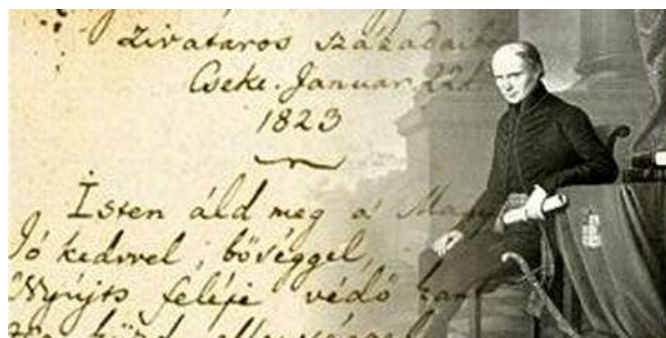 zivataros századaib
Cseke. Januar. 22d
1823
Isten áld meg a' Magy
Jó kedvvel, bőséggel,
Nyújts feléje védő kar